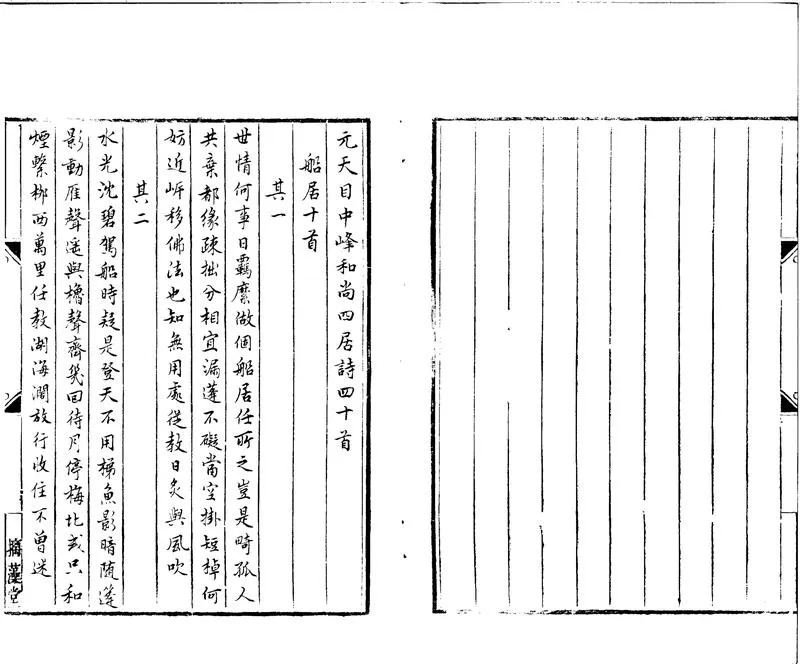 元天目中峰和尚四居詩四十首
船居十首
其一
世情何事日羈縻做個船居任所之豈是畸孤人
共棄都緣疎拙分相宜漏蓬不礙當空掛短棹何
妨近岍移佛法也知無用處從教日炙與風吹
其二
水光沈碧駕船時疑是登天不用梯魚影暗隨蓬
影動雁聲遥與櫓聲齊幾回待月停梅北或只和
煙繫栁西萬里任教湖海濶放行收住不曾迷
摛藻堂